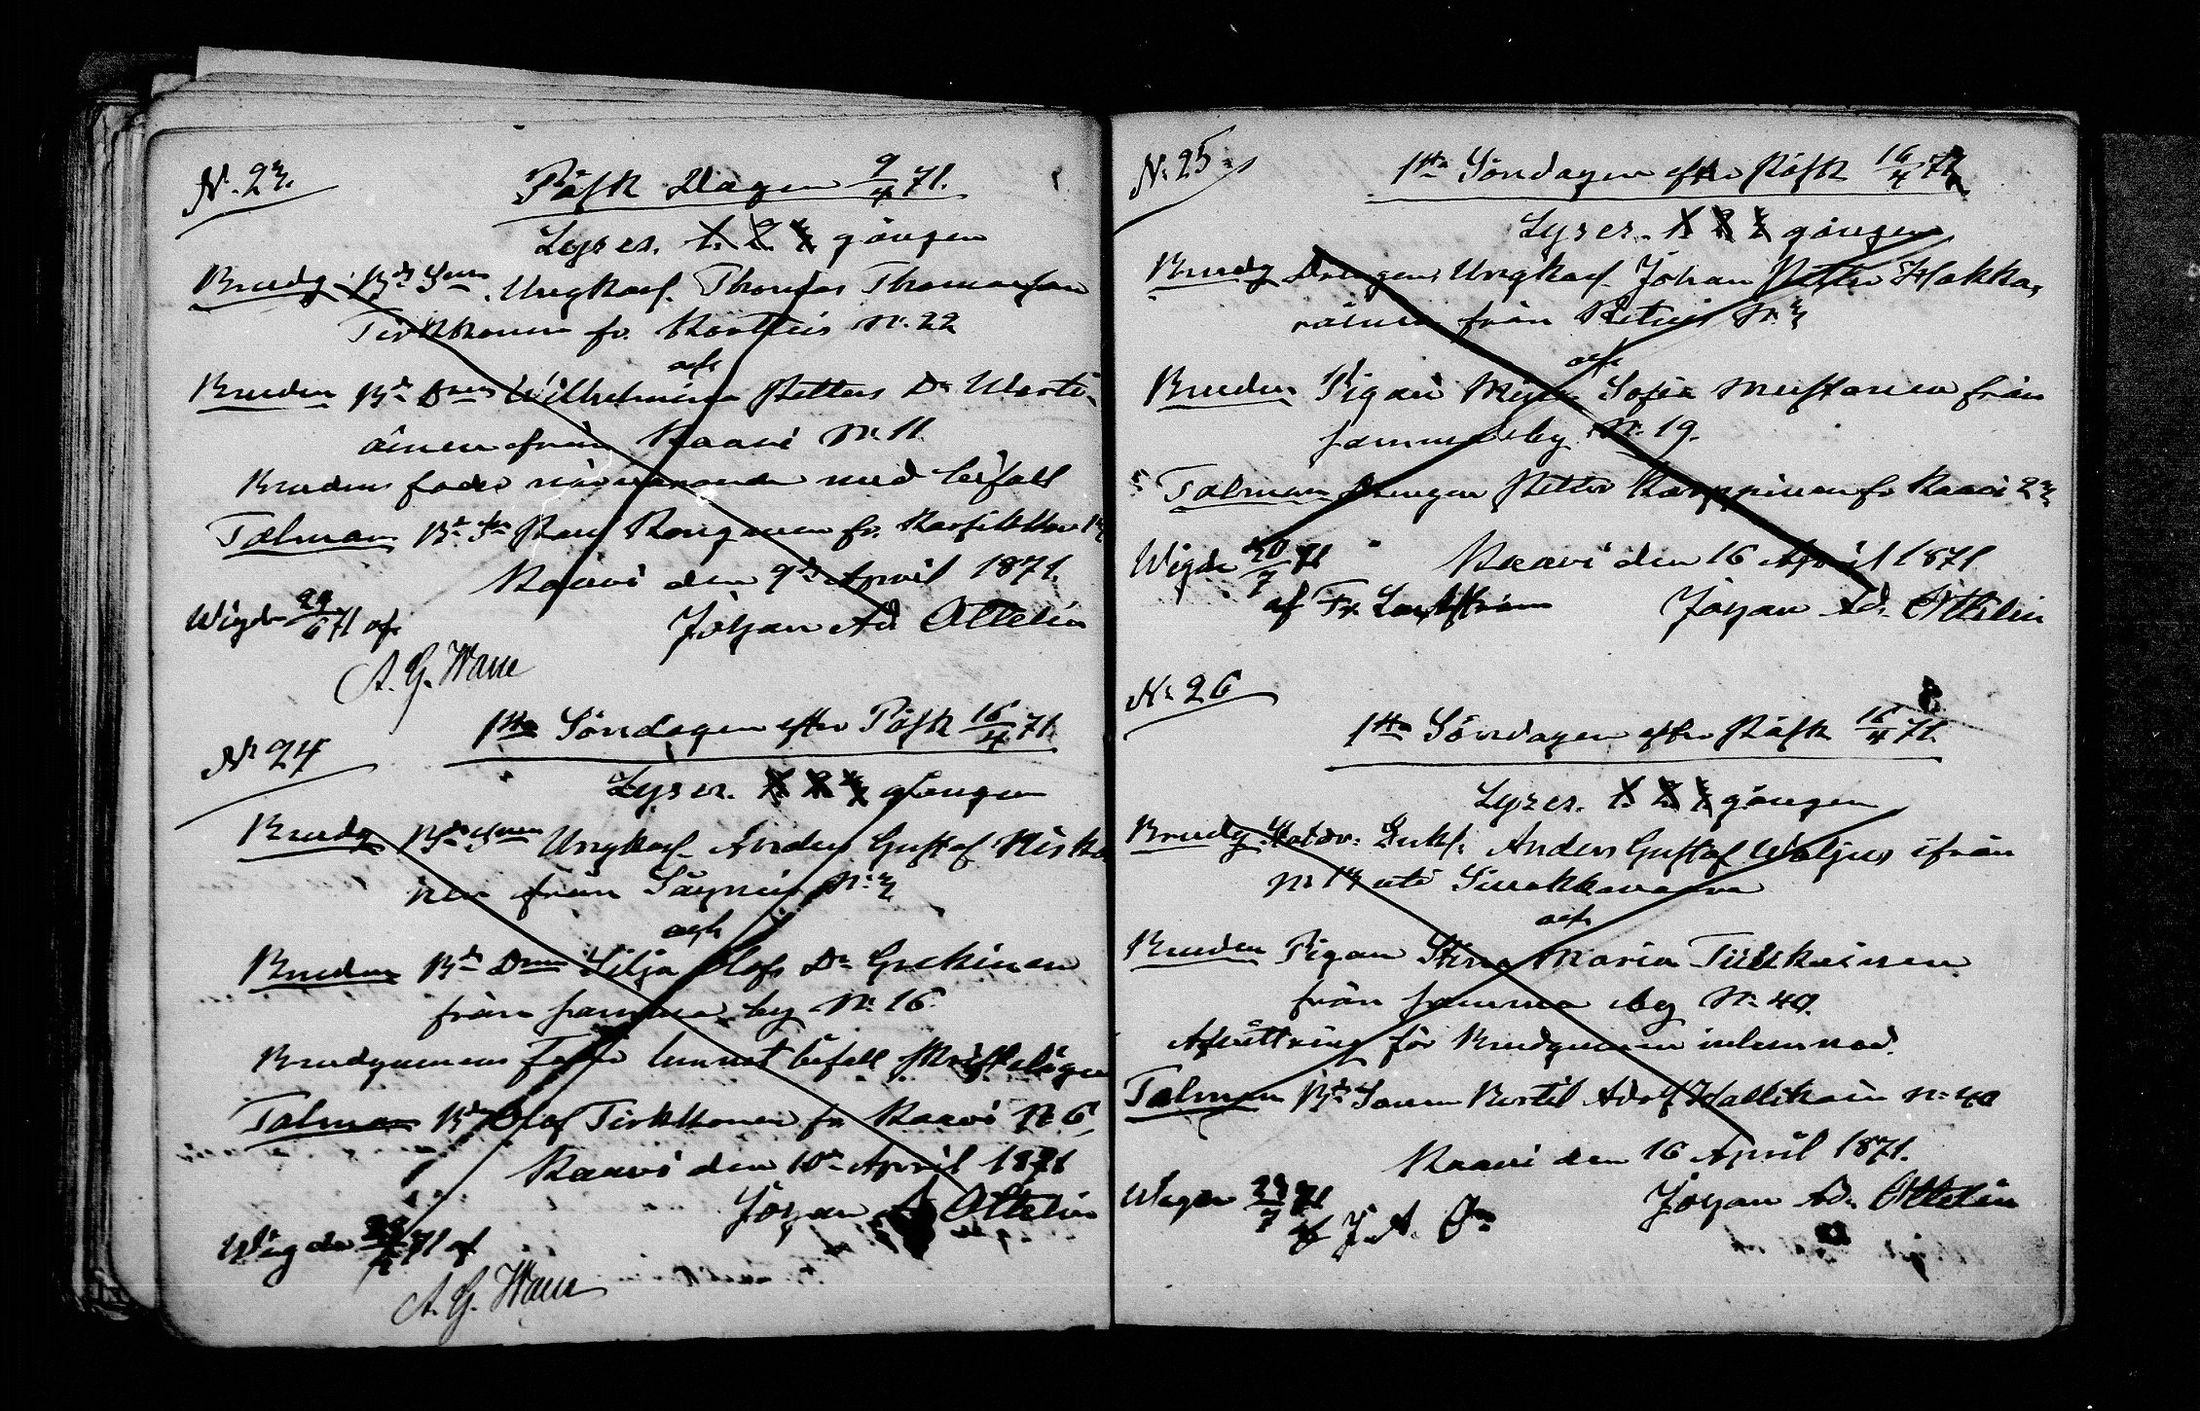 N. 23.
Påsk Dagen 9/4 71.
Lyses. 1. 2. 3. gången
Brudg. Bd Sen. Ungkarl. Thomas Thomasson
Tirkkonen fr. N. 22
och
Bruden Bd Dren Wilhelmina Petters Dr Warti-
ainen från Kaavi N. 11.
Brudens fader närvarande med bifall
Talman Bd Sn Paul fr.
Kaavi den 9de April 1871.
Wigde 24/6 71 af Johan Ad. Ottelin
A. G. Wane
N 24
1sta Söndagen efter Påsk 16/4 71.
Lyses. 1. 2. 3. gången
Brudg. Bd Sonen Ungkarl. Anders Gustaf Miska
nen från Säyneis N. 3
och
Bruden Bd Dren Silja Olofs Dr
från samma by N. 16
Brudgummens lemnat bifall skrifteligen
Talman Bd Olof Tirkkonen fr Kaavi N 6,
Kaavi den 10de April 1871
Johan A Ottelin
Wigde 71 af
A. G. Wane
N. 25
1sta Söndagen efter Påsk 16/4 71.
Lyses. 1. 2. 3. gången
Brudg Drengen Ungkarl Johan Petter Hakka,
rainen från N. 3
och
Bruden Pigan Sofia Mustonen från
samma by N. 19.
Talman Drengen Petter Karppinen fr Kaavi 23
Wigde 30/7 71 Kaavi den 16 April 1871
af Fr. Johan Ad. Ottelin
N. 26
1sta Söndagen efter Påsk 16/4 71.
Lyses. 1. 2. 3. gången
Brudg. Enkl. Anders Gustaf Waljus ifrån
N. 13 uti
och
Bruden Pigan Stina Maria Tiilikainen
från samma by N. 40.
Afvittring för Brudgummen inlemnad.
Talman Bd Sonen Bertil Adolf Hallikain N. 40
Kaavi den 16 April 1871.
Wigde 23/7 71 Johan Ad. Ottelin
af J. A.